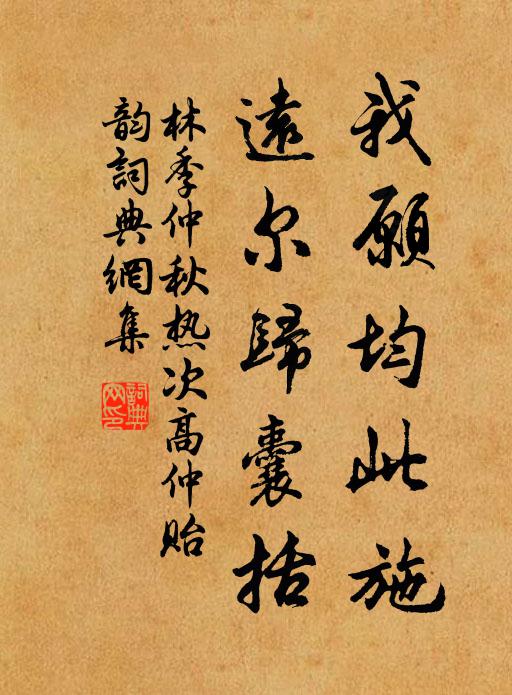 我願均此施
遠尔歸囊括
林季仲秋热次高仲贻
韵詞典網集
詞典网印